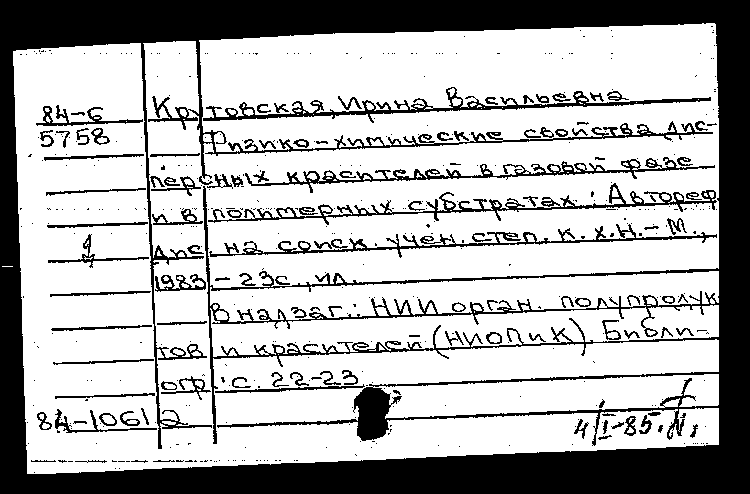 84-6 Крутовская, Ирина Васильевна
5758 Физико-химические свойства дис-
персных красителей в газовой фазе
и в полимерных субстратах : Автореф.
дис. на соиск. учен. степ. к. х. н. - М.,
1983 - 23с., ил.
В надзаг.: НИИ орган. полупродук
тов и красителей (НИОПиК). Библи-
огр.: с. 22-23
84-10612
4/I-85.